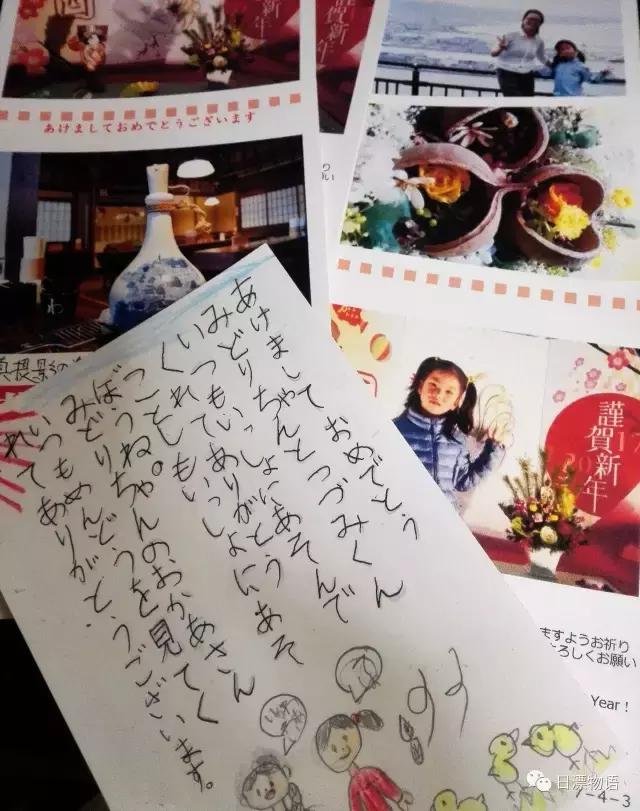 謹賀新年
あけましておめでとうございます
わ
謹賀新年
2017
ますようお祈り
よろしくお願い
Year！
7-4-3
あけまして おめでとう
みどりちゃんとつづみくん
いつもいっしょにあそんで
くれてありがとう
ことしもいっしょにあそ
ぼうね。
みどりちゃんのおかあさん
いつもめんどうを見てく
れてありがとうございます。
日漂物语